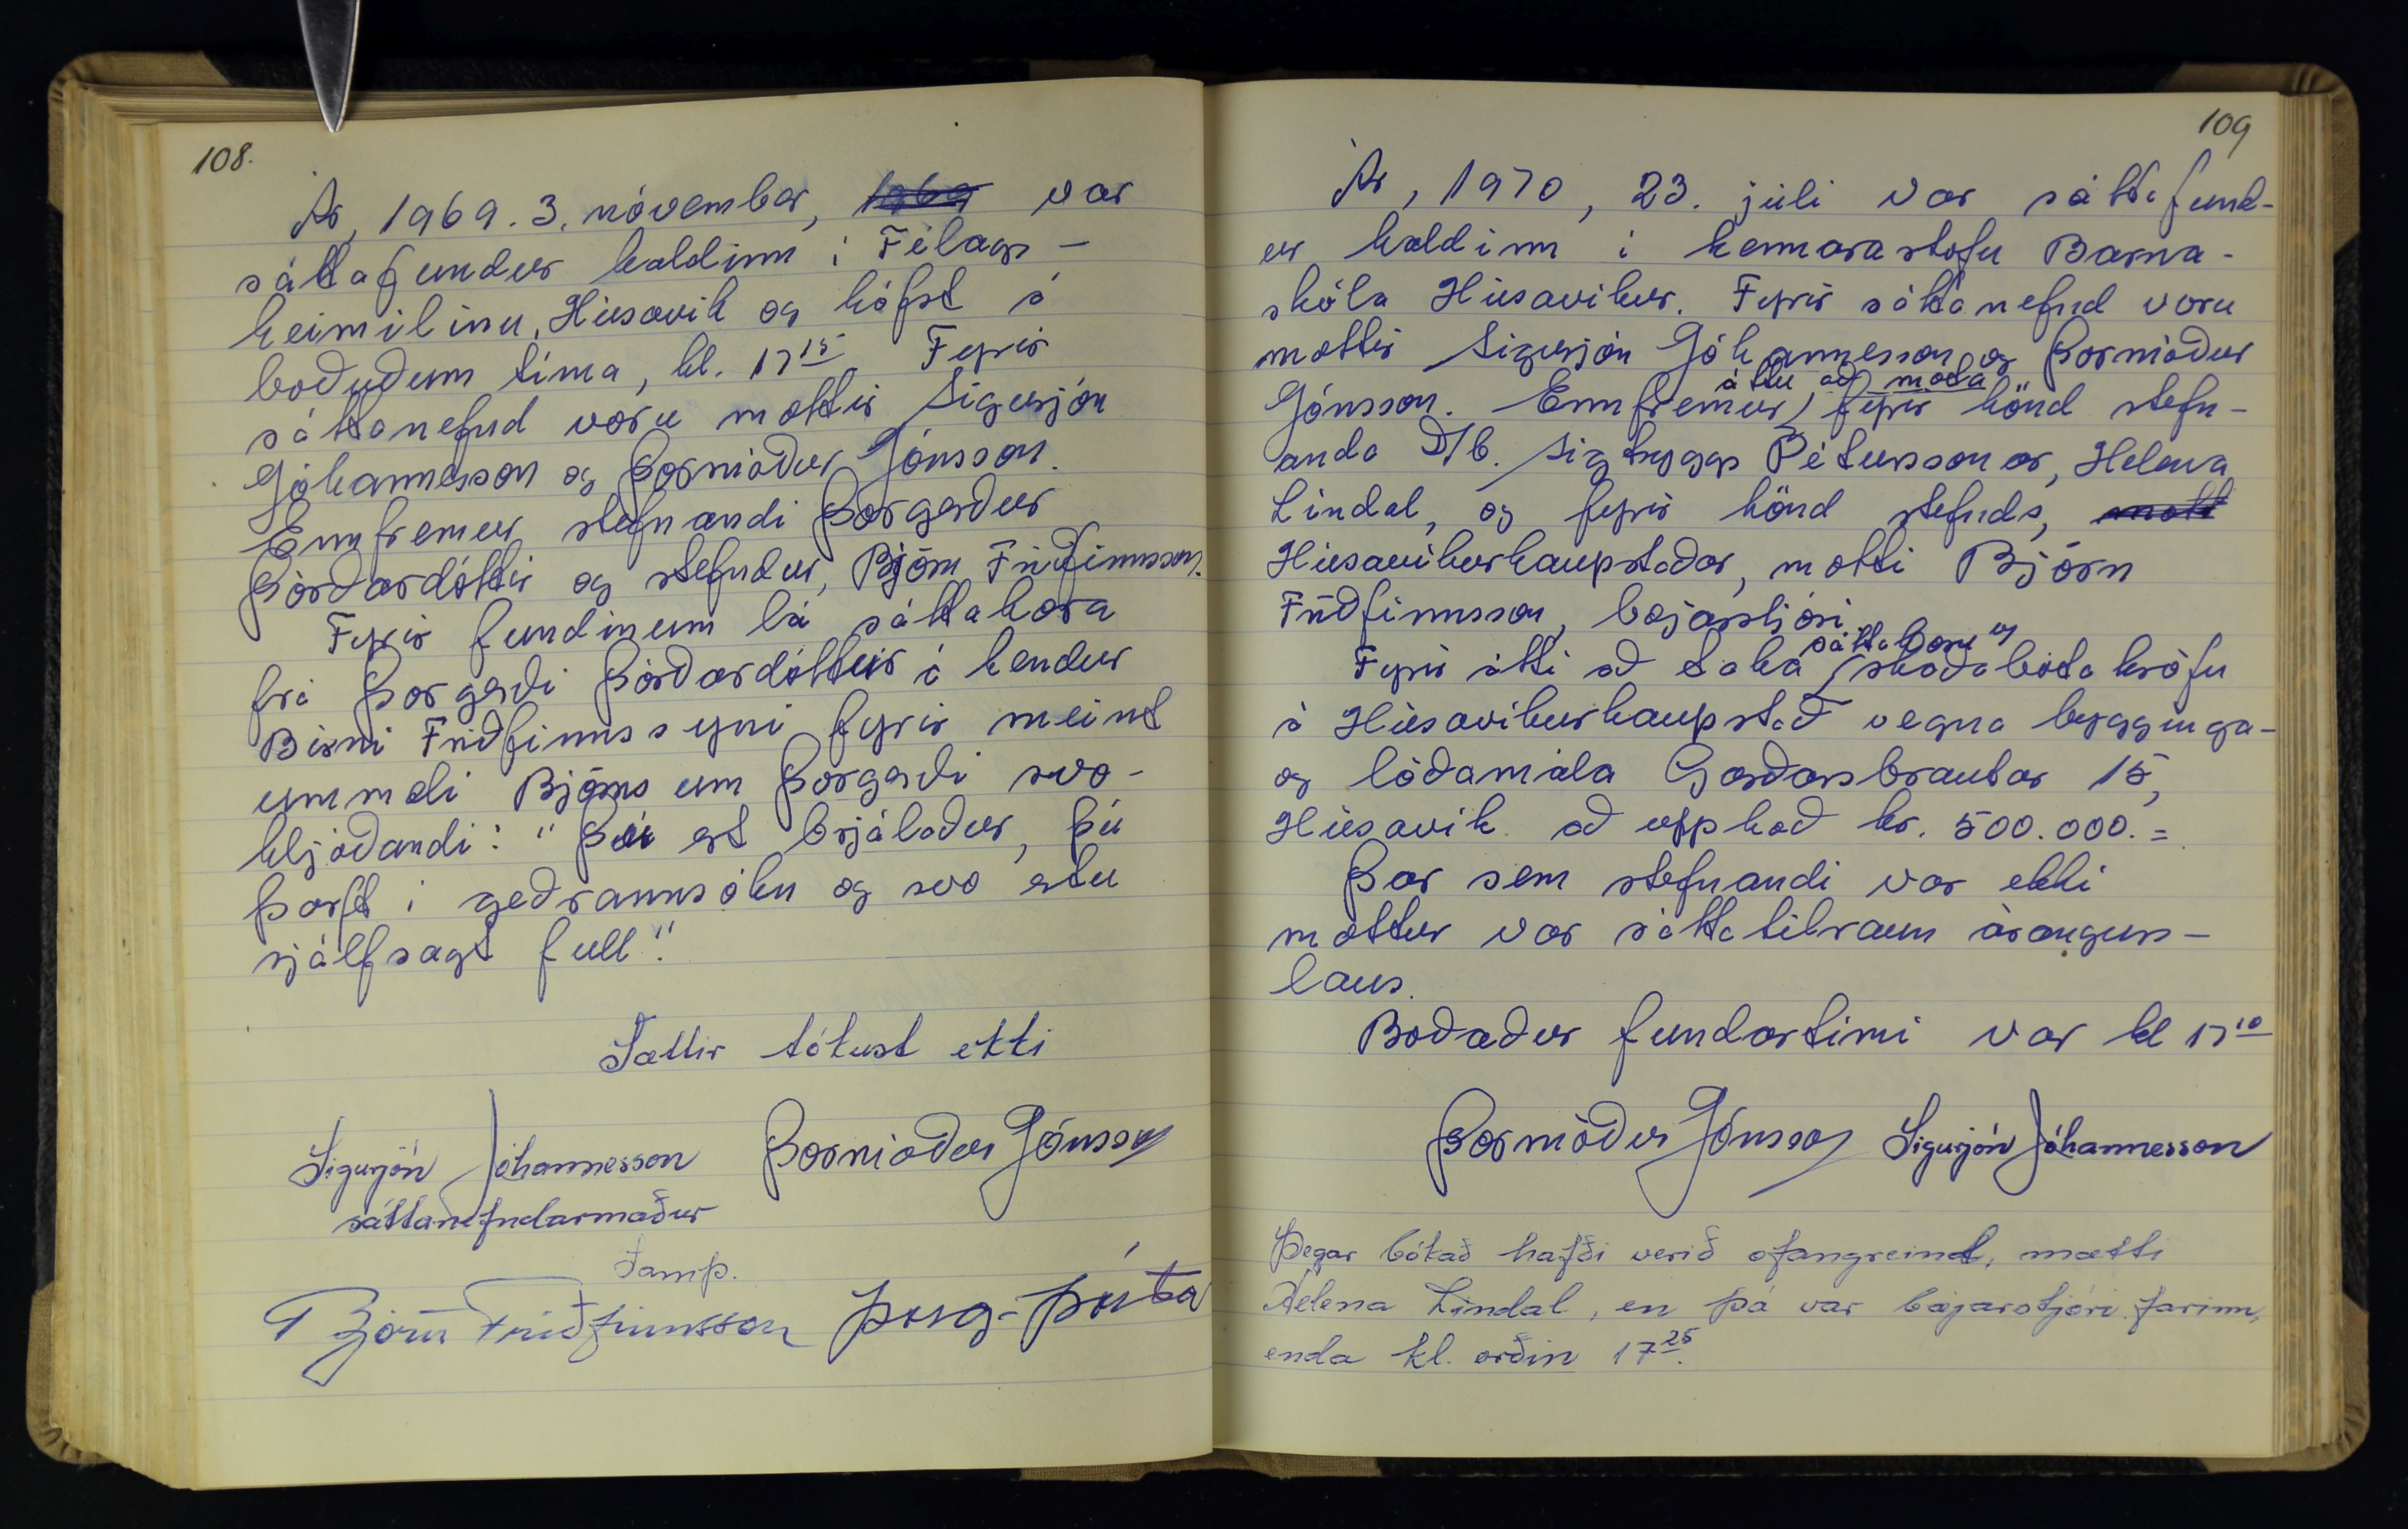 108.
Ár, 1969. 3. nóvember, 1969 var
sáttafundur haldinn í Félags-
heimilinu, Húsavík og hófst á
boðuðum tíma, kl. 17 15 Fyrir
sáttanefnd voru mættir Sigurjón
Jóhannesson og Þormóður Jónsson.
Ennfremur stefnandi Þorgerður
Þórðardóttir og stefndur, Björn Friðfinnsson.
Fyrir fundinum lá sáttakæra
frá Þorgerði Þórðardóttur á hendur
Birni Friðfinnssyni fyrir meint
ummæli Björns um Þorgerði svo-
hljóðandi: "Þú ert brjálaður, þú
þarft í geðrannsókn og svo ertu
sjálfsagt full"
Sættir tókust ekki
Sigurjón Jóhannesson Þormóður Jónsson
sáttanefndarmaður
Samþ.
Björn Friðfinnsson Þorg- Þórða
109
Ár, 1970, 23. júlí var sáttafund-
ur haldinn í kennarastofu Barna-
skóla Húsavíkur. Fyrir sáttanefnd voru
mættir Sigurjón Jóhannesson og Þormóður
áttu að mæta
Jónsson. Ennfremur fyrir hönd stefn-
anda D/b. Sigtryggs Péturssonar, Helena
Líndal, og fyrir hönd stefnds, mætt
Húsavíkurkaupstaðar, mætti Björn
Friðfinnsson, bæjarstjóri.
sáttakæru og
Fyrir átti að taka skaðabótakröfu
á Húsavíkurkaupstað vegna bygginga-
og lóðamála Garðarsbrautar 15,
Húsavík að upphæð kr. 500.000.=
Þar sem stefnandi var ekki
mættur var sáttatilraun árangurs-
laus.
Boðaður fundartími var kl 17 10
Þormóður Jónsson Sigurjón Jóhannesson
Þegar bókað hafði verið ofangreind, mætti
Helena Líndal, en þá var bæjarstjóri farinn,
enda kl. orðin 17 25.